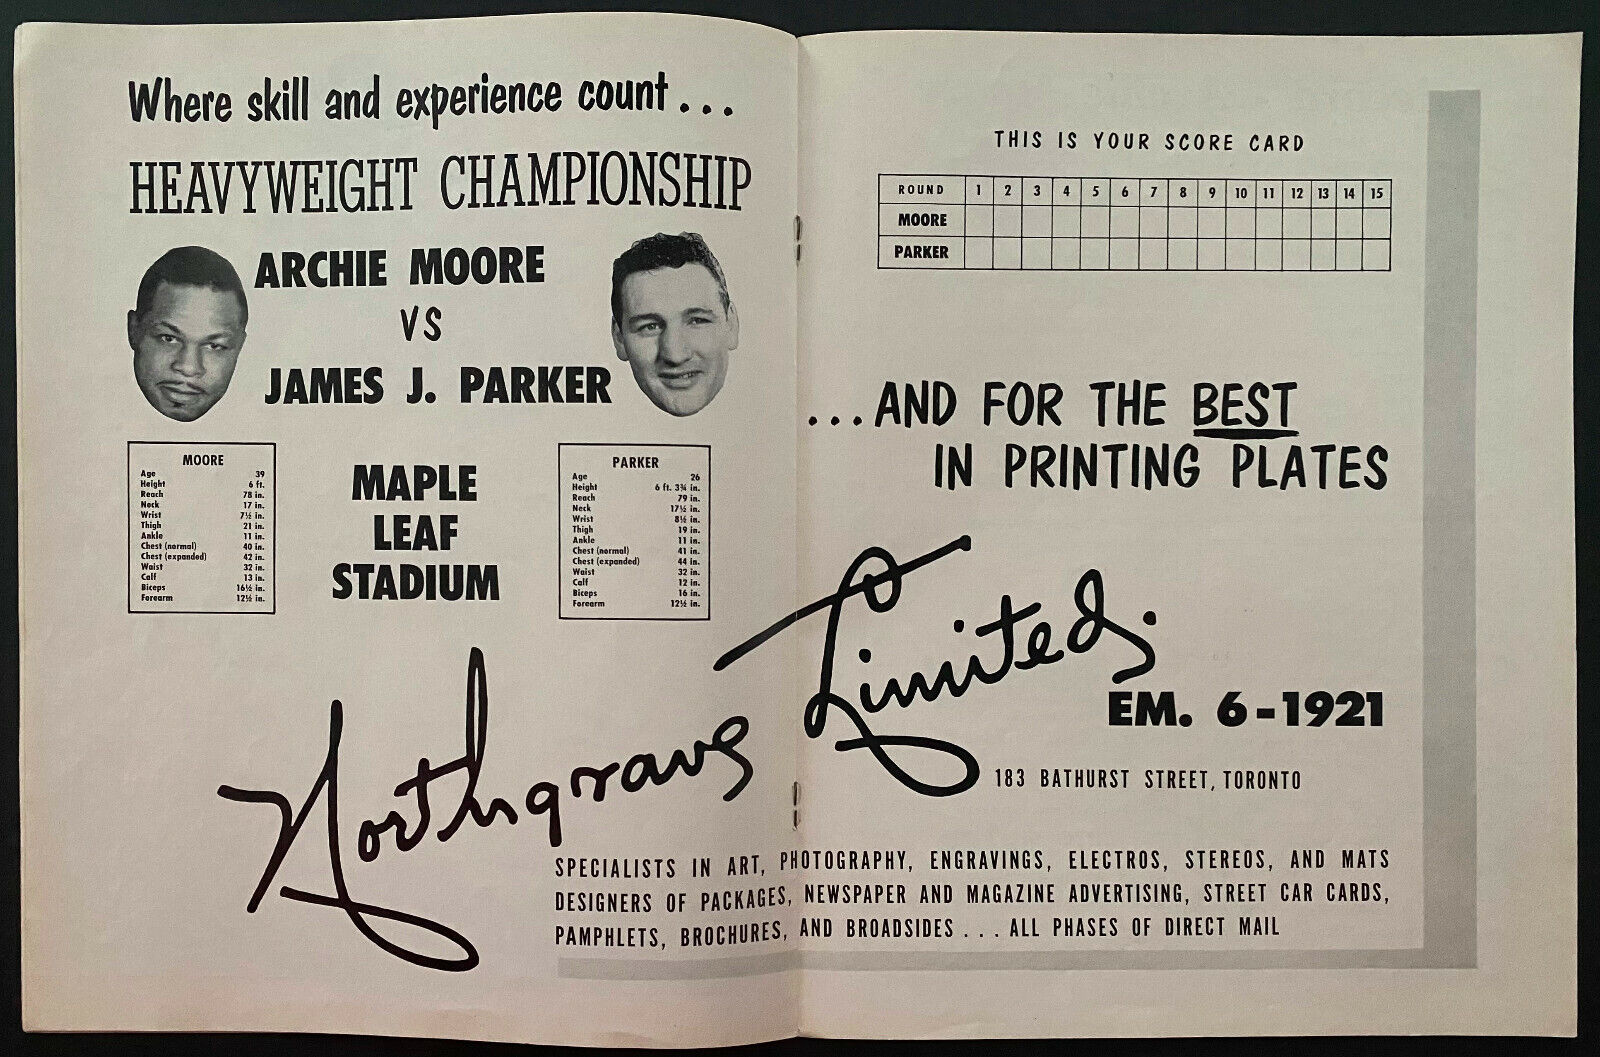 Where skill and experience count . . .
HEAVYWEIGHT CHAMPIONSHIP
ARCHIE MOORE
VS
JAMES J. PARKER
MOORE
Age 39
Height 6 ft.
Reach 78 in.
Neck 17 in.
Wrist 7½ in.
Thigh 21 in.
Ankle 11 in.
Chest (normal) 40 in.
Chest (expanded) 42 in.
Waist 32 in.
Calf 13 in.
Biceps 16½ in.
Forearm 12½ in.
MAPLE
LEAF
STADIUM
PARKER
Age 26
Height 6 ft. 3¾ in.
Reach 79 in.
Neck 17½ in.
Wrist 8½ in.
Thigh 19 in.
Ankle 11 in.
Chest (normal) 41 in.
Chest (expanded) 44 in.
Waist 32 in.
Calf 12 in.
Biceps 16 in.
Forearm 12½ in.
THIS IS YOUR SCORE CARD
ROUND 1 2 3 4 5 6 7 8 9 10 11 12 13 14 15
MOORE
PARKER
. . . AND FOR THE BEST
IN PRINTING PLATES
Northgrave Limited.
EM. 6-1921
183 BATHURST STREET, TORONTO
SPECIALISTS IN ART, PHOTOGRAPHY, ENGRAVINGS, ELECTROS, STEREOS, AND MATS
DESIGNERS OF PACKAGES, NEWSPAPER AND MAGAZINE ADVERTISING, STREET CAR CARDS,
PAMPHLETS, BROCHURES, AND BROADSIDES . . . ALL PHASES OF DIRECT MAIL